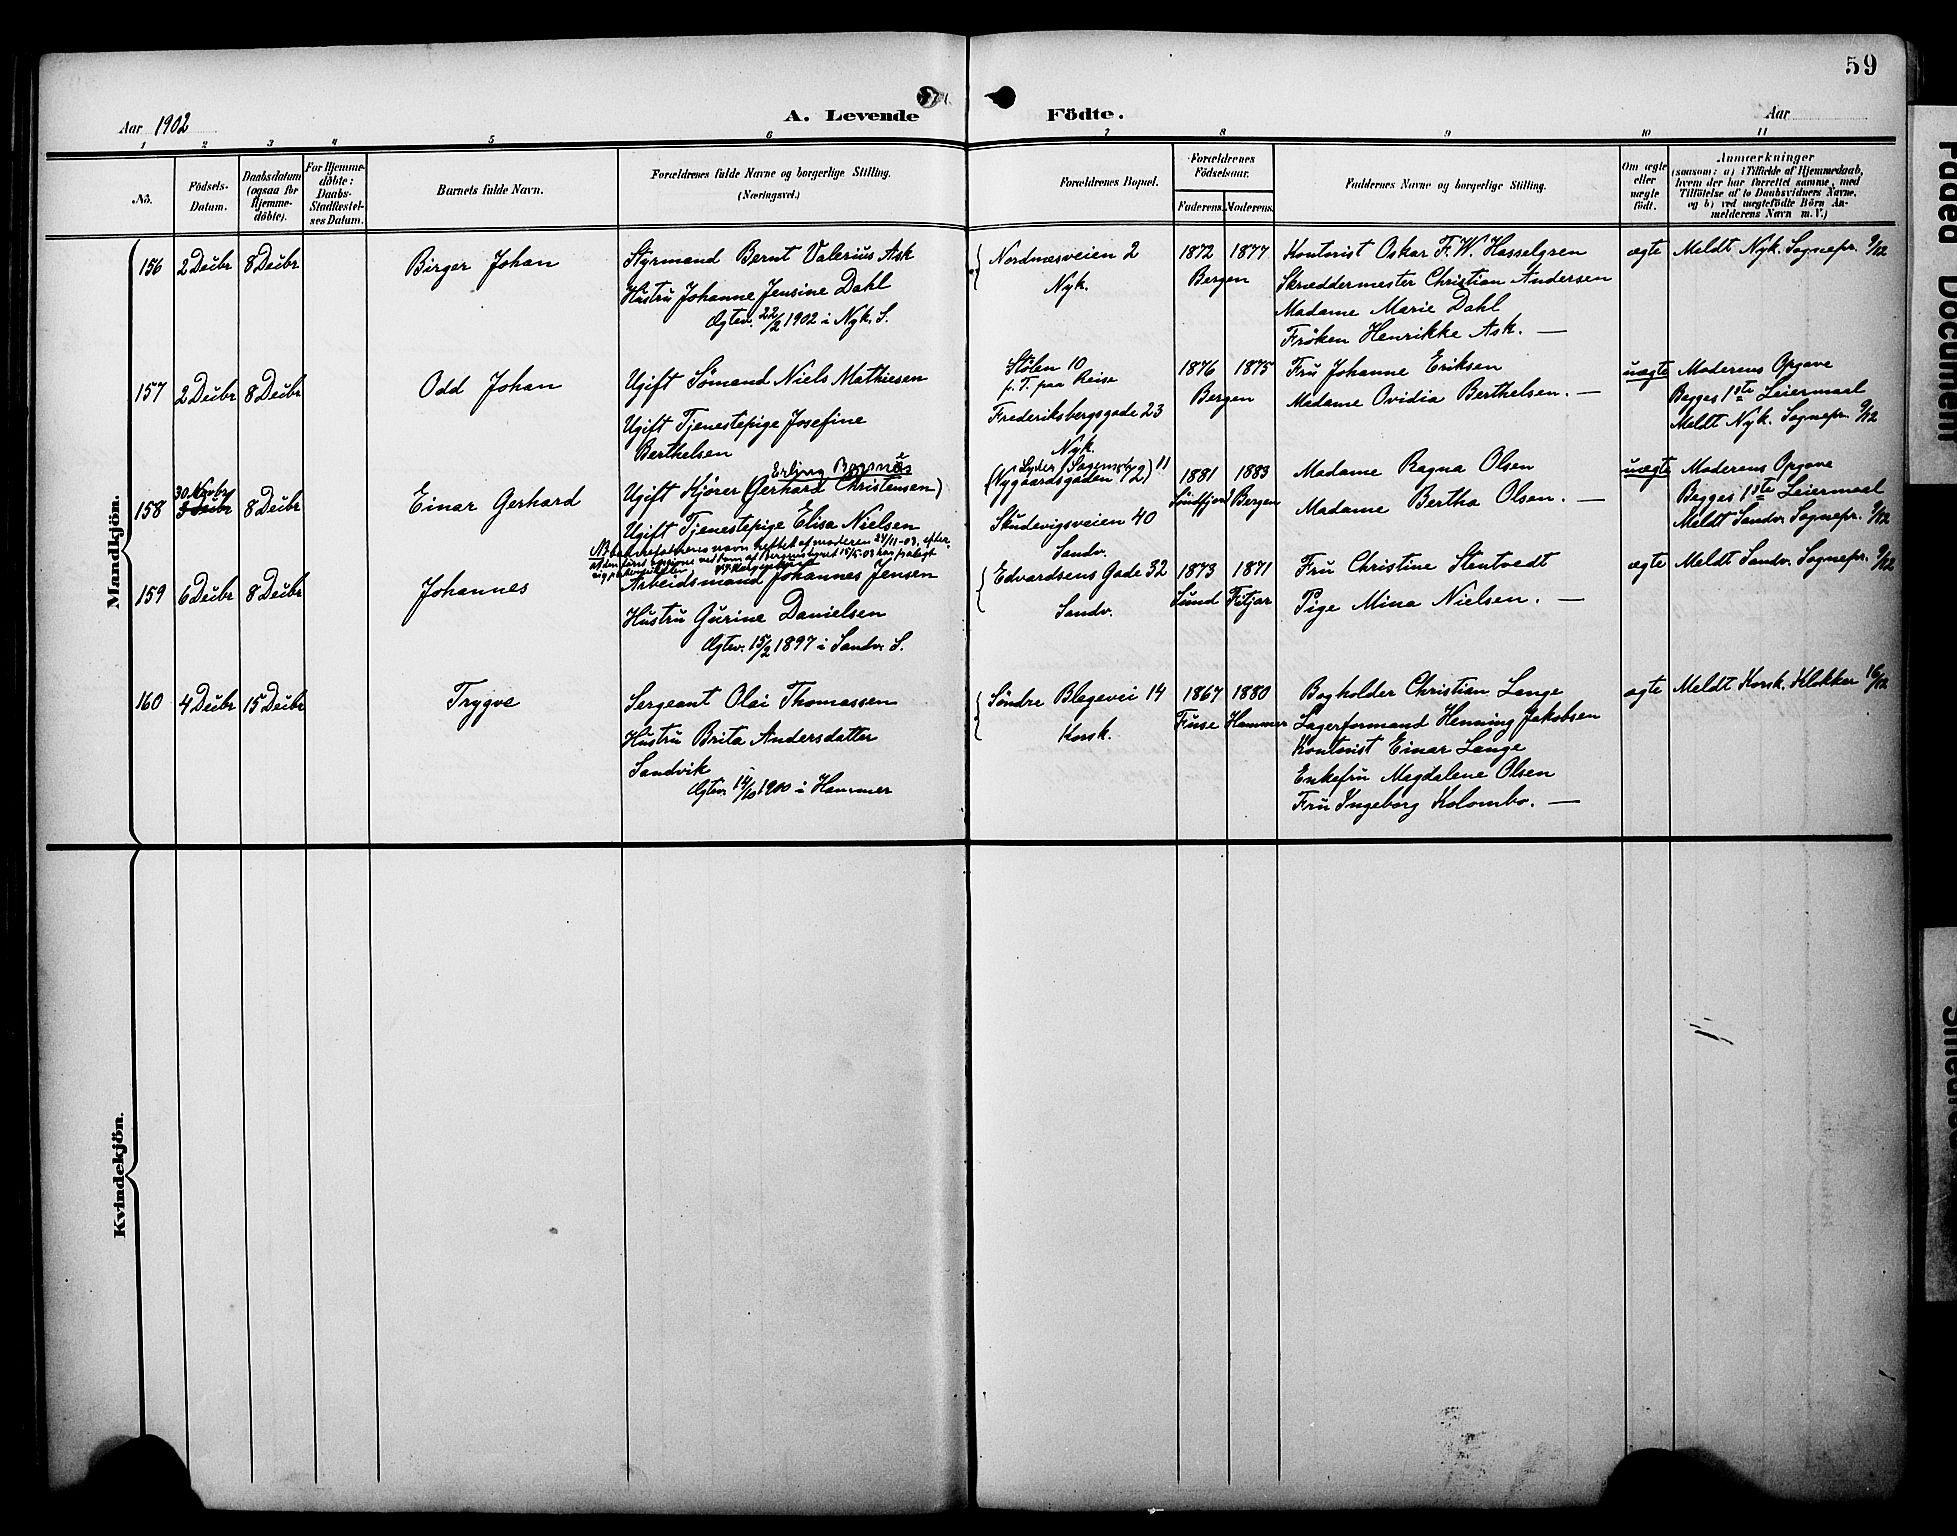 59
Aar 1902
A. Levende Födte.
Aar
1 2 3 4 5 6 7 8 9 10 11
No.
Födsels-
Datum.
Daabsdatum
(ogsaa for
Hjemme-
döbte).
For Hjemme-
döbte:
Daabs-
Stadfæstel-
ses Datum.
Barnets fulde Navn.
Forældrenes fulde Navne og borgerlige Stilling.
(Næringsvei.)
Forældrenes Bopæl.
Forældrenes
Födselsaar.
Faderens. Moderens.
Faddernes Navne og borgerlige Stilling.
Om ægte
eller
uægte
födt.
Anmærkninger
(saasom: a) i Tilfælde af Hjemmedaab,
hvem der har forrettet samme, med
Tilföielse af to Daabsvidners Navne,
og b) ved uægtefödte Börn An-
melderens Navn m. V.)
Mandkjön.
156 2 Deibr 8 Deibr
Birger Johan
Styrmand Bernt Valerius Ask
Hustru Johanne Jensine Dahl
Ægtev. 22/2 1902 i Nyk. S.
Nordnæsveien 2
Nyk.
1872 1877
Bergen
Kontorist Oskar F. W. Hasselgren
Skræddermester Christian Andersen
Madame Marie Dahl
Frøken Henrikke Ask. —
ægte
Meldt Nyk. Sognepr. 9/12
157 2 Deibr 8 Deibr
Odd Johan
Ugift Sömand Niels Mathiesen
Ugift Tjenestepige Josefine
Berthelsen
Stölen 10
f. T. paa Reise
Frederiksbergsgade 23
Nyk.
1876 1875
Bergen
Fru Johanne Eriksen
Madame Ovidia Berthelsen. —
uægte
Moderens Opgave
Begges 1ste Leiermaal
Meldt Nyk. Sognepr. 9/12
158 30 Novbr 3 Deibr 8 Deibr
Einar Gerhard
Erling
Ugift Kjörer (Gerhard Christensen)
Ugift Tjenestepige Elisa Nielsen
11
(Nygaardsgaden 12)
Skudevigsveien 40
Sandv.
1881 1883
Söndfjord Bergen
Madame Ragna Olsen
Madame Bertha Olsen. —
uægte
Moderens Opgave
Begges 1ste Leiermaal
Meldt Sandv. Sognepr. 9/12
159 6 Deibr 8 Deibr
Johannes
Arbeidsmand Johannes Jensen
Hustru Gurine Danielsen
Ægtev. 15/2 1897 i Sandv. S.
Edvardsens Gade 32
Sandv.
1873 1871
Sund Fitjar
Fru Christine Stentvedt
Pige Mina Nielsen. —
ægte
Meldt Sandv. Sognepr. 9/12
160 4 Deibr 15 Deibr
Trygve
Sergeant Olai Thomassen
Hustru Brita Andersdatter
Sandvik
Ægtev. 14/10 1900 i Hammer
Söndre Blegevei 14
Korsk.
1867 1880
Fuse Hammer
Bogholder Christian Lange
Lagerformand Henning Jakobsen
Kontorist Einar Lange
Enkefru Magdalene Olsen
Fru Ingeborg Kolombo. —
ægte
Meldt Korsk. Klokker 16/12
Kvindekjön.
Faded Document